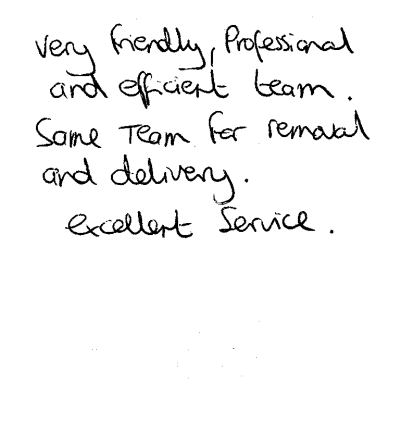 very friendly, Professional
and efficient team.
Same Team for removal
and delivery.
excellent Service.